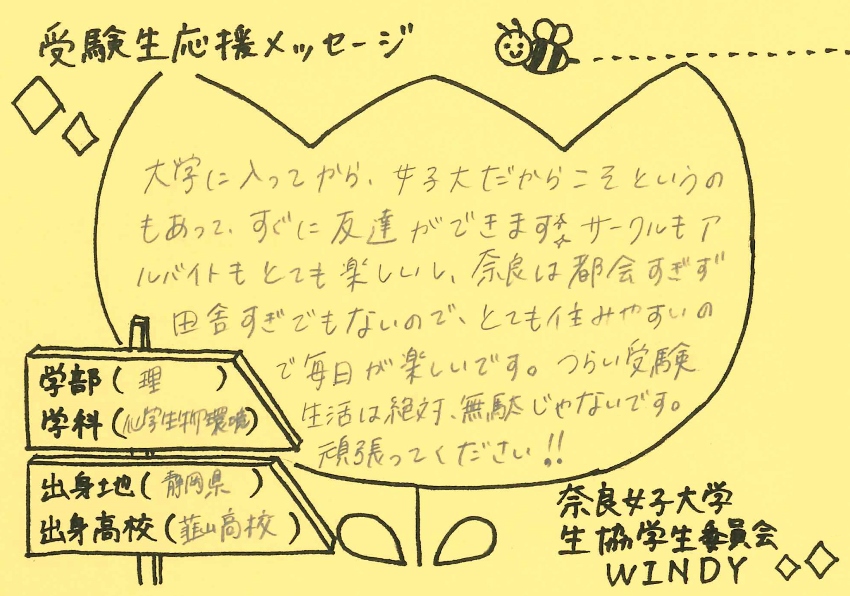 受験生応援メッセージ
大学に入ってから、女子大だからこそというの
もあって、すぐに友達ができます サークルもア
ルバイトもとても楽しいし、奈良は都会すぎず
田舎すぎでもないので、とても住みやすいの
で毎日が楽しいです。つらい受験
生活は絶対、無駄じゃないです。
頑張ってください!!
学部(理)
学科(化学生物環境)
出身地(静岡県)
出身高校(韮山高校)
奈良女子大学
生協学生委員会
WINDY